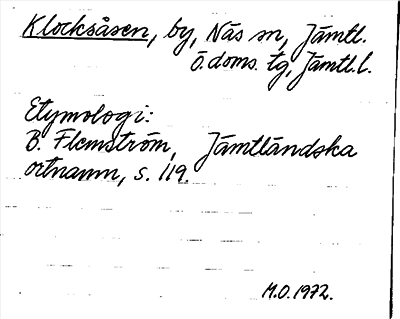 Klocksåsen, by, Näs sn, Jämtl.
ö. doms. tg, Jämtl. l.
Etymologi:
B. Flemström, Jämtländska
ortnamn, s. 119.
M.O. 1972.